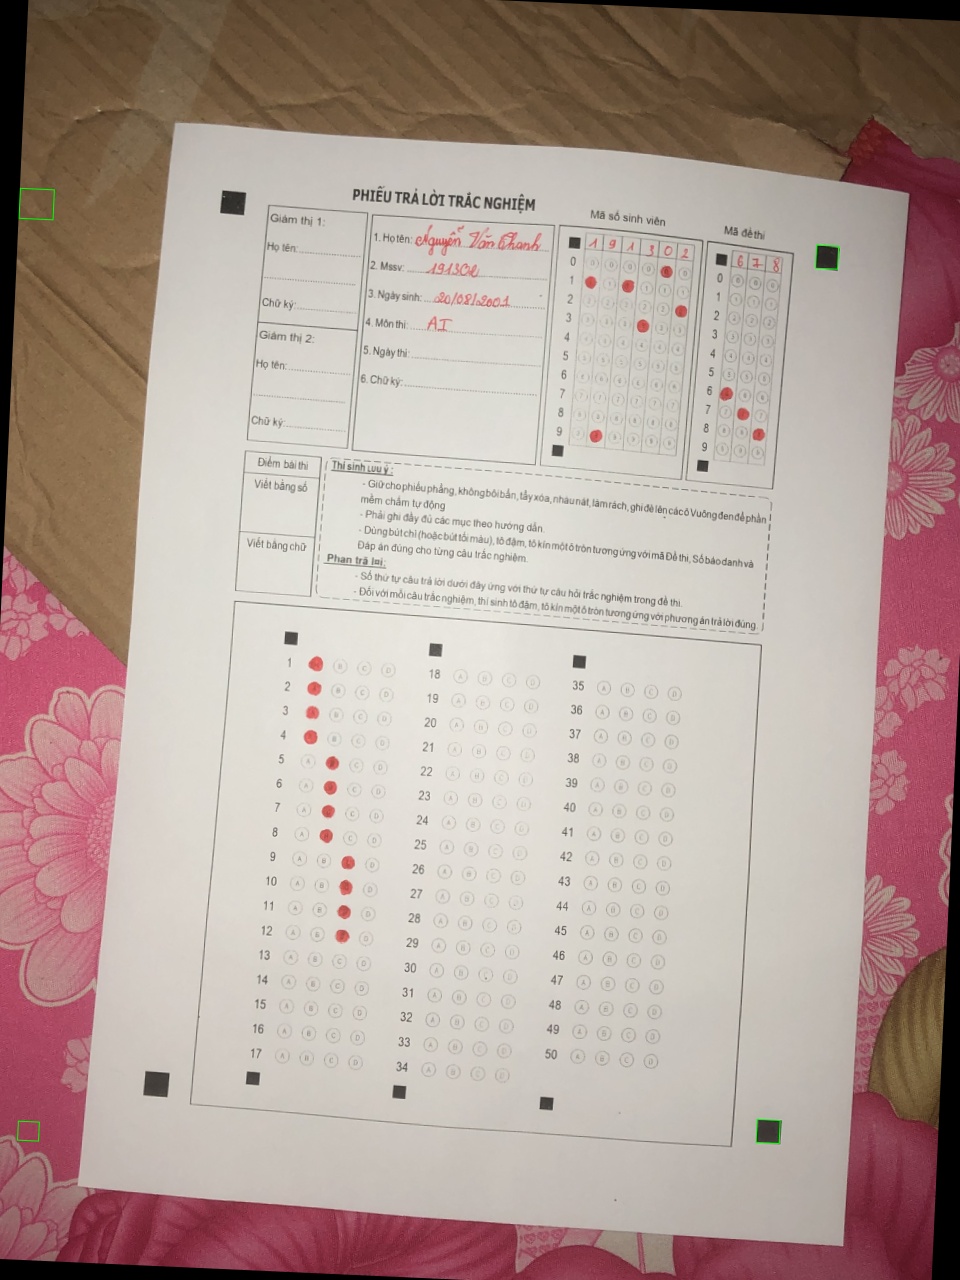 PHIẾU TRẢ LỜI TRẮC NGHIỆM
Giám thị 1:
Họ tên:
Chữ ký:
Giám thị 2:
Họ tên:
Chữ ký:
1. Họ tên: Nguyễn Văn Thanh
2. Mssv: 191302
3. Ngày sinh: 20/08/2001
4. Môn thi: AI
5. Ngày thi:
6. Chữ ký:
Mã số sinh viên
1 9 1 3 0 2
0
1
2
3
4
5
6
7
8
9
Mã đề thi
6 7 8
0
1
2
3
4
5
6
7
8
9
Điểm bài thi
Viết bằng số
Viết bằng chữ
Thí sinh lưu ý:
- Giữ cho phiếu phẳng, không bôi bẩn, tẩy xóa, nhàu nát, làm rách, ghi đè lên các ô Vuông đen để phần
mềm chấm tự động
- Phải ghi đầy đủ các mục theo hướng dẫn.
- Dùng bút chì (hoặc bút tối màu), tô đậm, tô kín một ô tròn tương ứng với mã Đề thi, Số báo danh và
Đáp án đúng cho từng câu trắc nghiệm.
Phần trả lời:
- Số thứ tự câu trả lời dưới đây ứng với thứ tự câu hỏi trắc nghiệm trong đề thi.
- Đối với mỗi câu trắc nghiệm, thí sinh tô đậm, tô kín một ô tròn tương ứng với phương án trả lời đúng.
1 B C D
2 B C D
3 B C D
4 B C D
5 A C D
6 A C D
7 A C D
8 A C D
9 A B D
10 A B D
11 A B D
12 A B D
13 A B C D
14 A B C D
15 A B C D
16 A B C D
17 A B C D
18 A B C D
19 A B C D
20 A B C D
21 A B C D
22 A B C D
23 A B C D
24 A B C D
25 A B C D
26 A B C D
27 A B C D
28 A B C D
29 A B C D
30 A B C D
31 A B C D
32 A B C D
33 A B C D
34 A B C D
35 A B C D
36 A B C D
37 A B C D
38 A B C D
39 A B C D
40 A B C D
41 A B C D
42 A B C D
43 A B C D
44 A B C D
45 A B C D
46 A B C D
47 A B C D
48 A B C D
49 A B C D
50 A B C D